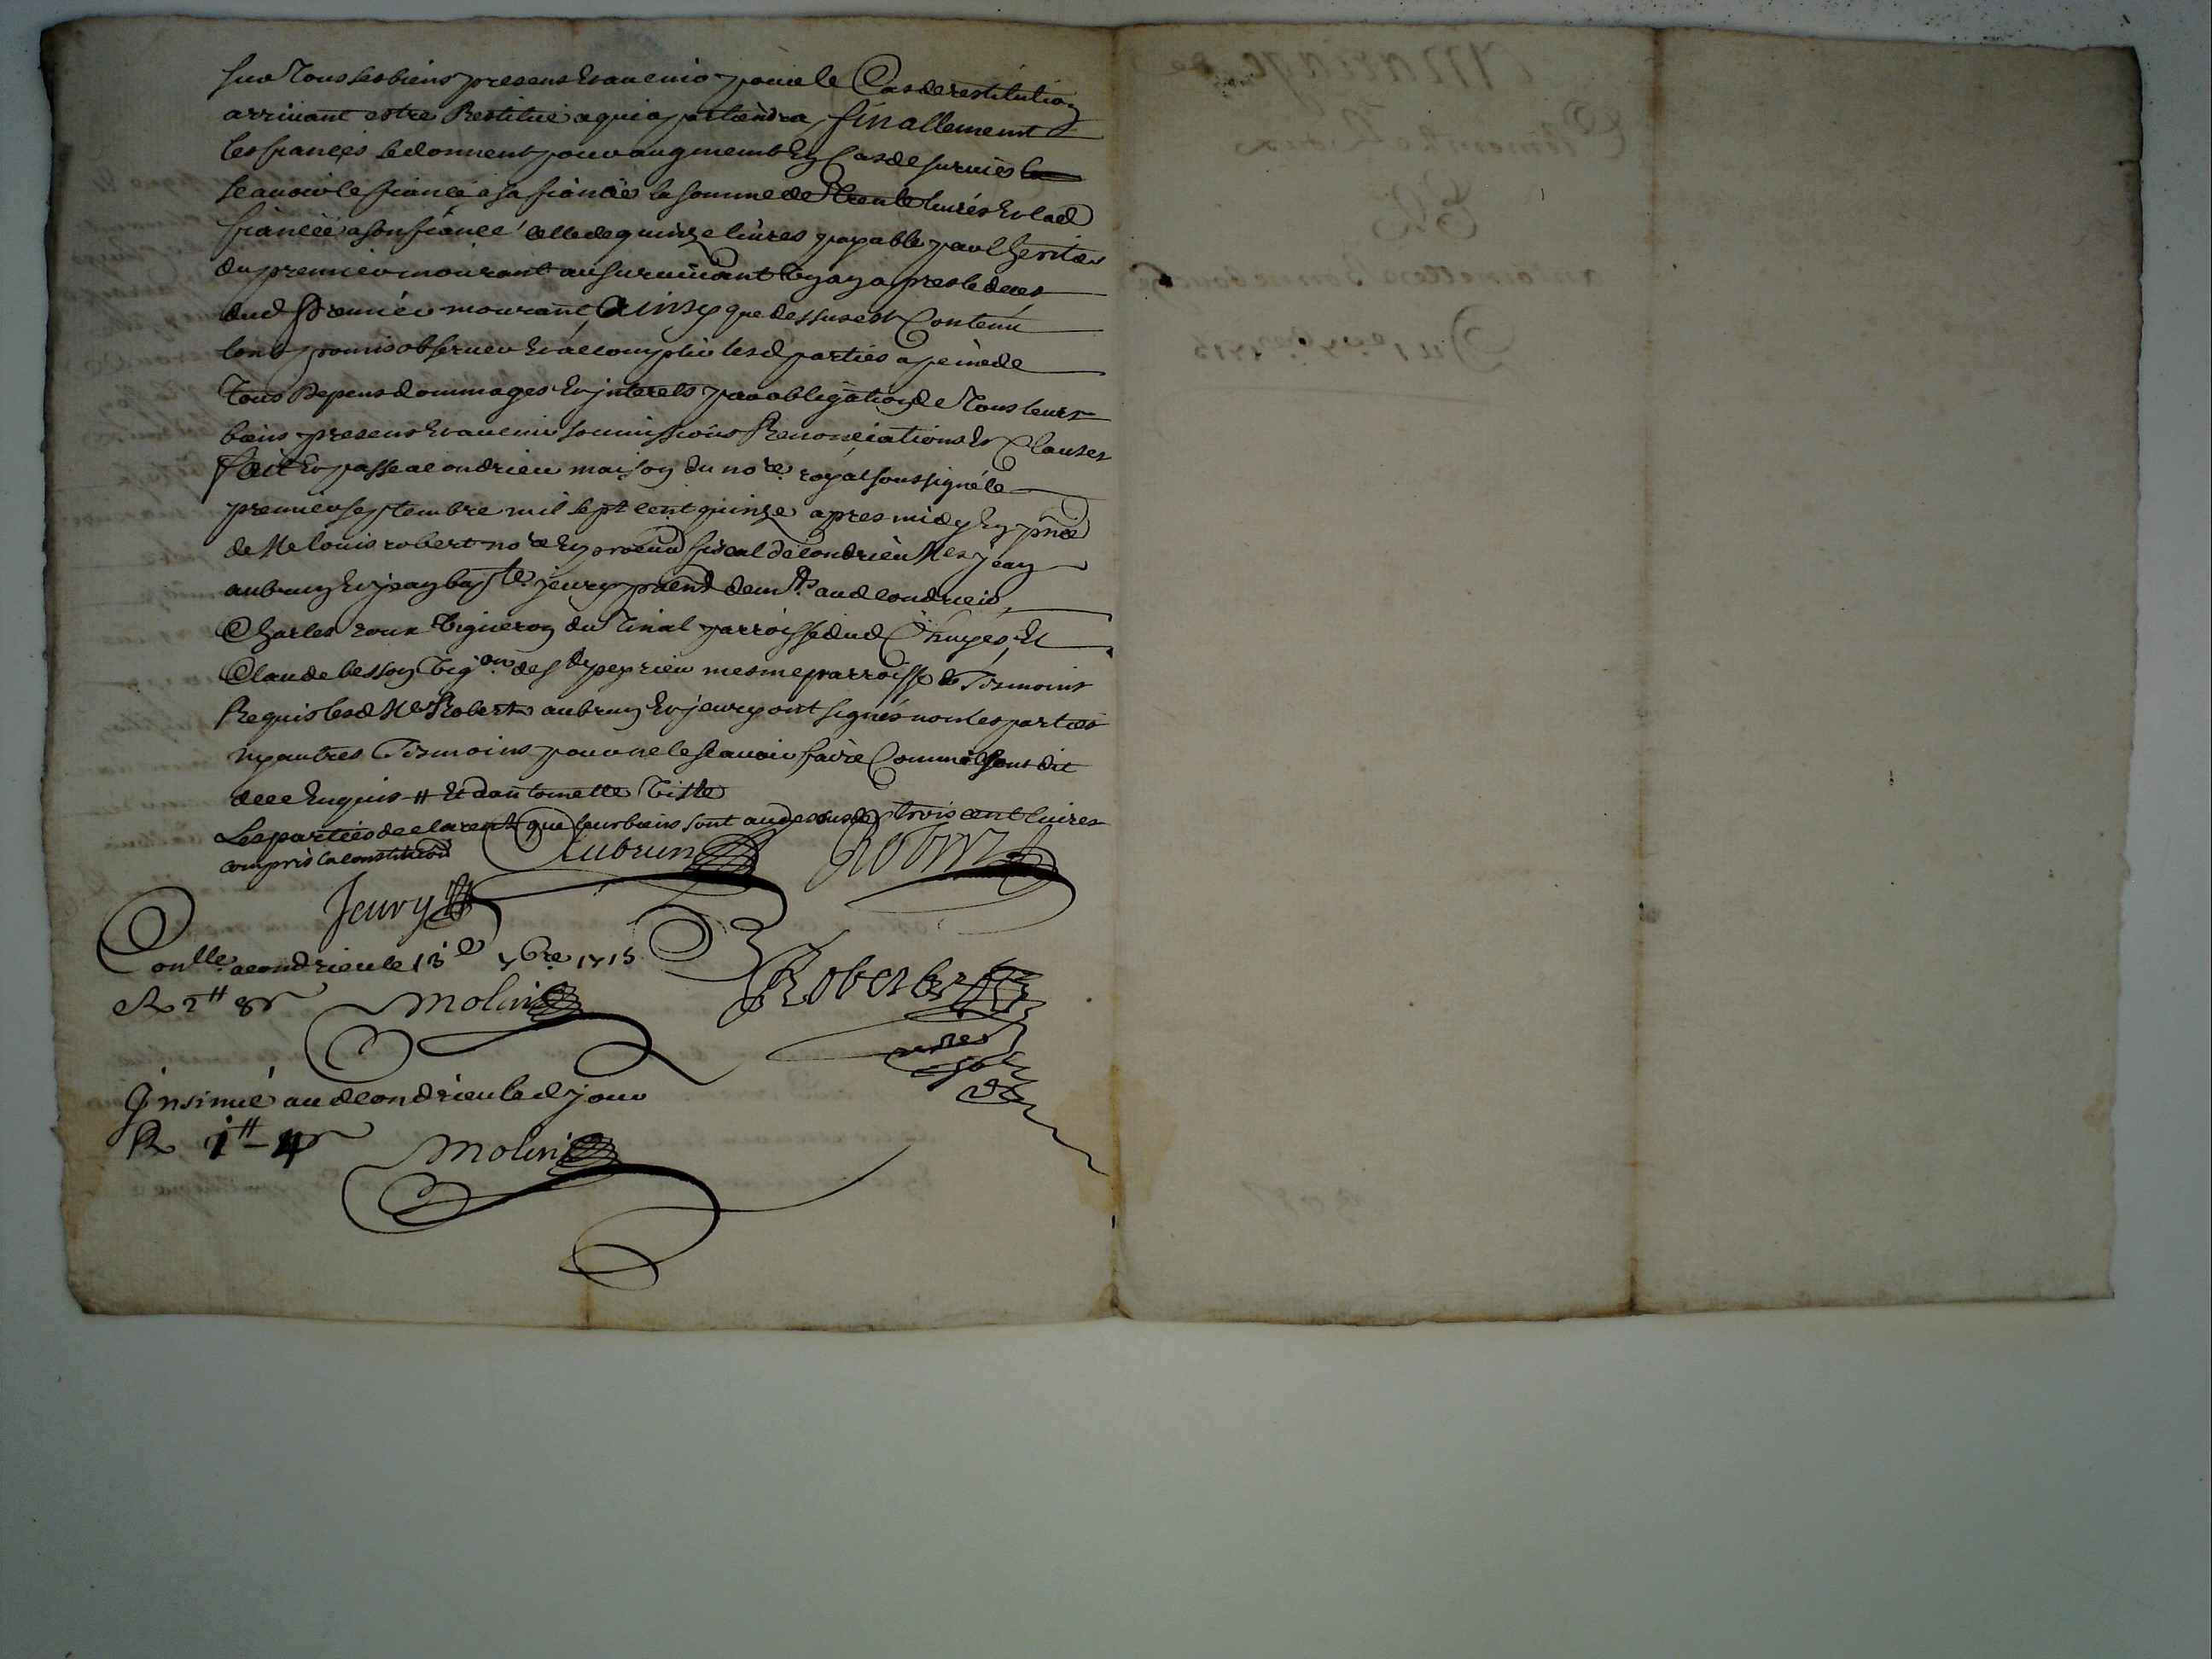 sur Tous ses biens presens Et avenir pour le Cas de restitution
arrivant estre Restitué a qui apartiendra, finallement
les fiancés se donnent pour augment En Cas de survies
scavoir le fiancé a sa fiancée la somme de Trente livres Et lad
fiancée a son fiancé celle de quinze livres payable par l'heritier
du premier mourant au survivant Ung an apres le deces
dud premier mourant, Ainsy que dessus est Contenu
lont promis observer Et accomplir lesd parties a peine de
Tous Depens dommages Et interets par obligation de Tous leurs
biens presens Et avenir soumissions Renonciations Et Clauses
fait Et passé a Condrieu maison du nore royal soussigné le
premier septembre mil sept cent quinze apres midy En pnce
de Me louis robert nore Et procur fiscal de Condrieu Mes jean
aubrun Et jean bapte jeury pratn demts aud Condrieu,
Charles roux Vigneron du Tinal parroisse dud Chuyes, Et
Claude besson Vigon de peyrieu mesme parroisse Tesmoins
Requis lesd Me Robert aubrun Et jeury ont signés non les parties
ny autres Tesmoins pour ne le scavoir faire Comme ils ont dit
de ce Enquis Et dantoinette Viste
Les parties declarent que leurs biens sont au dessous de trois cent livres
compris la constitution
Aubrun Robert
Jeury
Conlle a condrieu le 13e 7bre 1715
R 2# 8s Molin
Robert
Insinué aud Condrieu led jour
R 1# 4s
Molin
Mariage de
Roux
Et
antoinette
Du 1er 7bre 1715